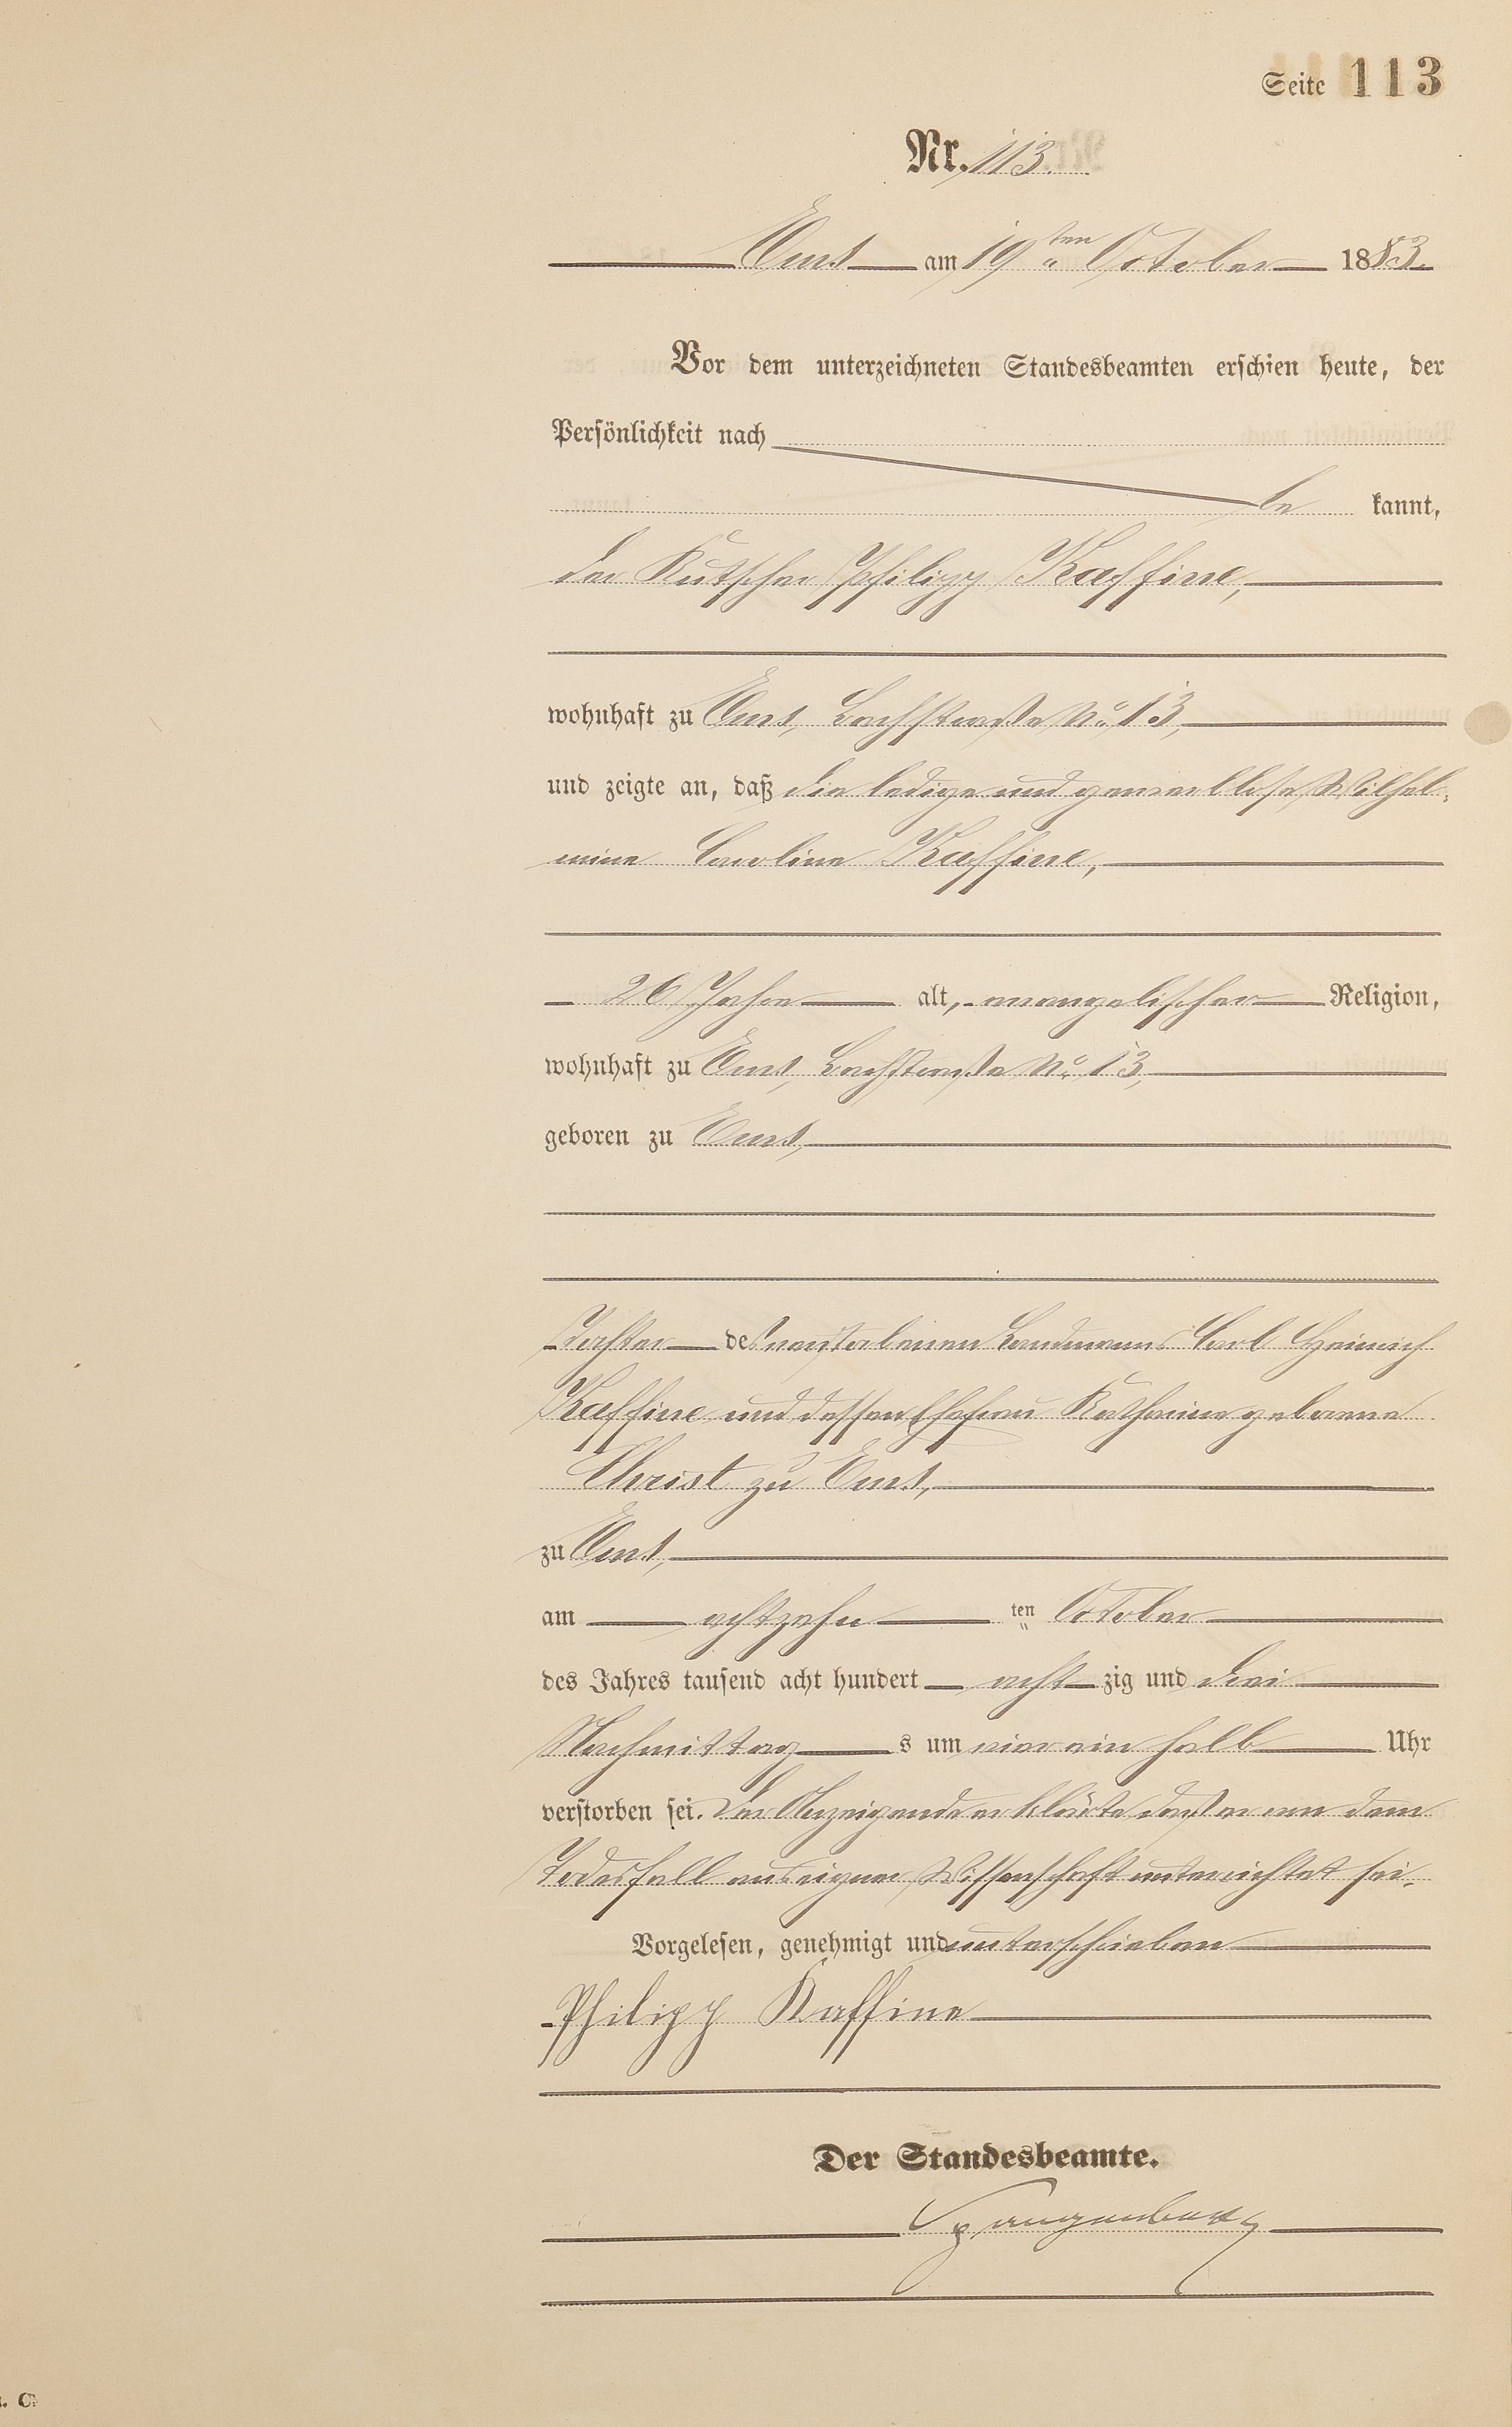 Seite 113
Nr. 113.
Ems am 19ten October 1883.
Vor dem unterzeichneten Standesbeamten erschien heute, der
Persönlichkeit nach
be kannt,
der Kutscher Philipp Kaffine,
wohnhaft zu Ems, Bachstraße No. 13,
und zeigte an, daß die ledige und gewerblose Wilhel-
mine Caroline Kaffine,
26 Jahre alt, evangelischer Religion,
wohnhaft zu Ems, Bachstraße No. 13,
geboren zu Ems,
Tochter des verstorbenen Landmanns Carl Heinrich
Kaffine und dessen Ehefrau Katharine geborene
Christ zu Ems,
zu Ems,
am achtzehn ten October
des Jahres tausend acht hundert acht zig und drei
Nachmittag s um vier ein halb Uhr
verstorben sei. Der Anzeigende erklärte daß er von dem
Todesfall aus eigner Wissenschaft unterrichtet sei.
Vorgelesen, genehmigt und unterschrieben
Philipp Kaffine
Der Standesbeamte.
Spangenberg